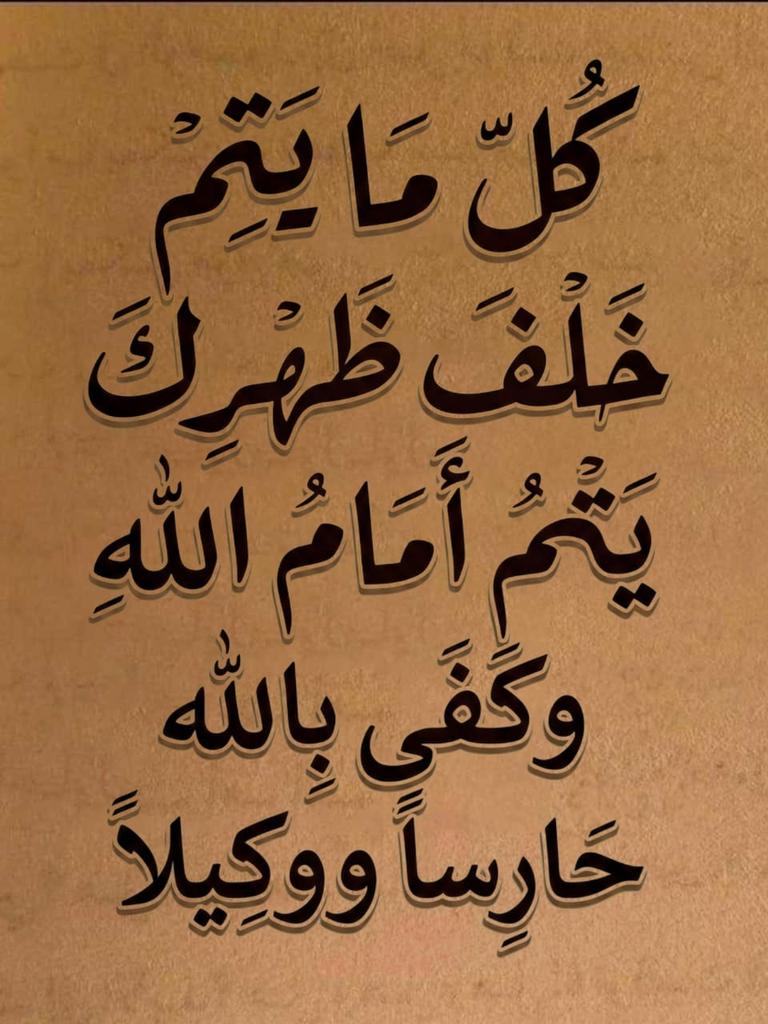 كُلّ مَا يَتِمْ
خَلْفَ ظَهْرِكَ
يَتْمُ أَمَامُ اللهِ
وكَفَى بِالله
حَارِساً ووكِيلاً